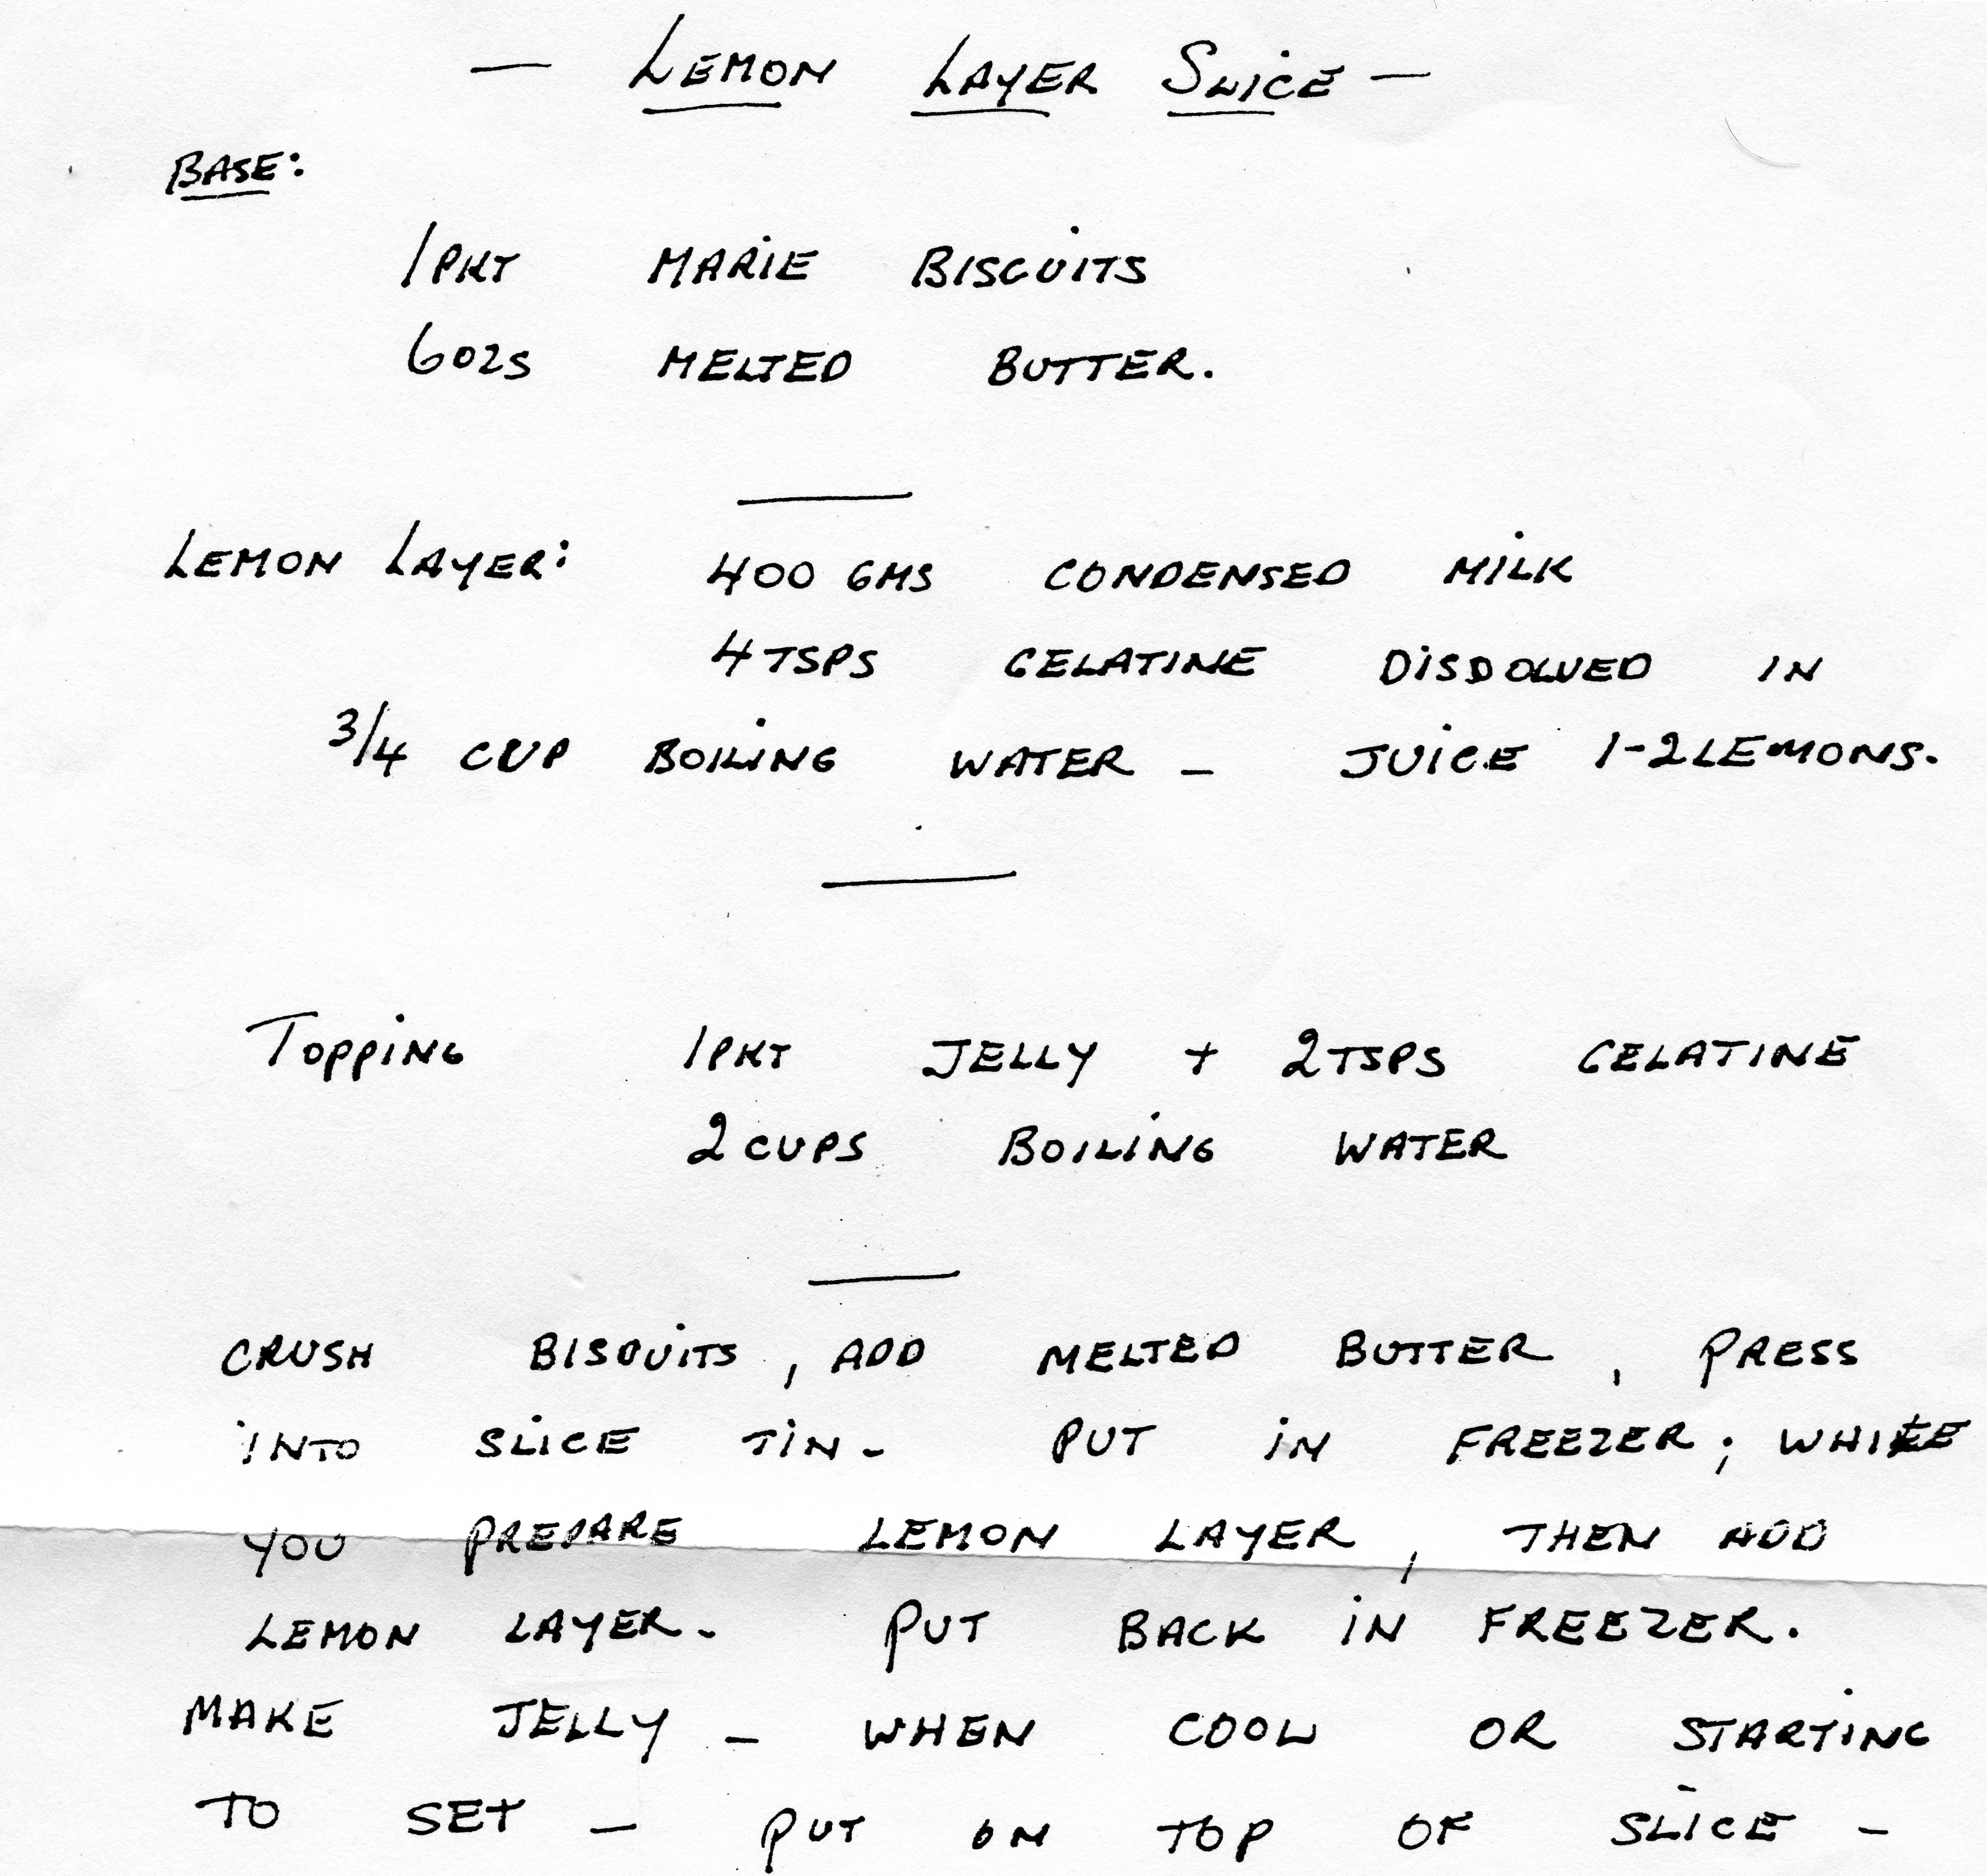 — LEMON LAYER SLICE —
BASE:
1PKT MARIE BISCUITS
6OZS MELTED BUTTER.
LEMON LAYER: 400 GMS CONDENSED MILK
4TSPS GELATINE DISDOLVED IN
3/4 CUP BOILING WATER – JUICE 1-2 LEMONS.
TOPPING 1PKT JELLY + 2TSPS GELATINE
2 CUPS BOILING WATER
CRUSH BISQUITS, ADD MELTED BUTTER, PRESS
INTO SLICE TIN - PUT IN FREEZER; WHILE
YOU PREPARE LEMON LAYER, THEN ADD
LEMON LAYER - PUT BACK IN FREEZER.
MAKE JELLY – WHEN COOL OR STARTING
TO SET – PUT ON TOP OF SLICE –